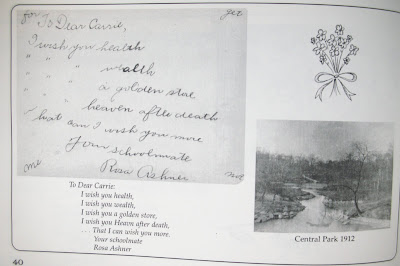 for
get
To Dear Carrie,
I wish you health
" " " wealth
" " " a golden stoe
" " " heaven afte death
What can I wish you more
Your schoolmate
Rosa Ashner
me
not
To Dear Carrie:
I wish you health,
I wish you wealth,
I wish you a golden store,
I wish you Heavn after death,
... That can I wish you more.
Your schoolmate
Rosa Ashner
Central Park 1912
40